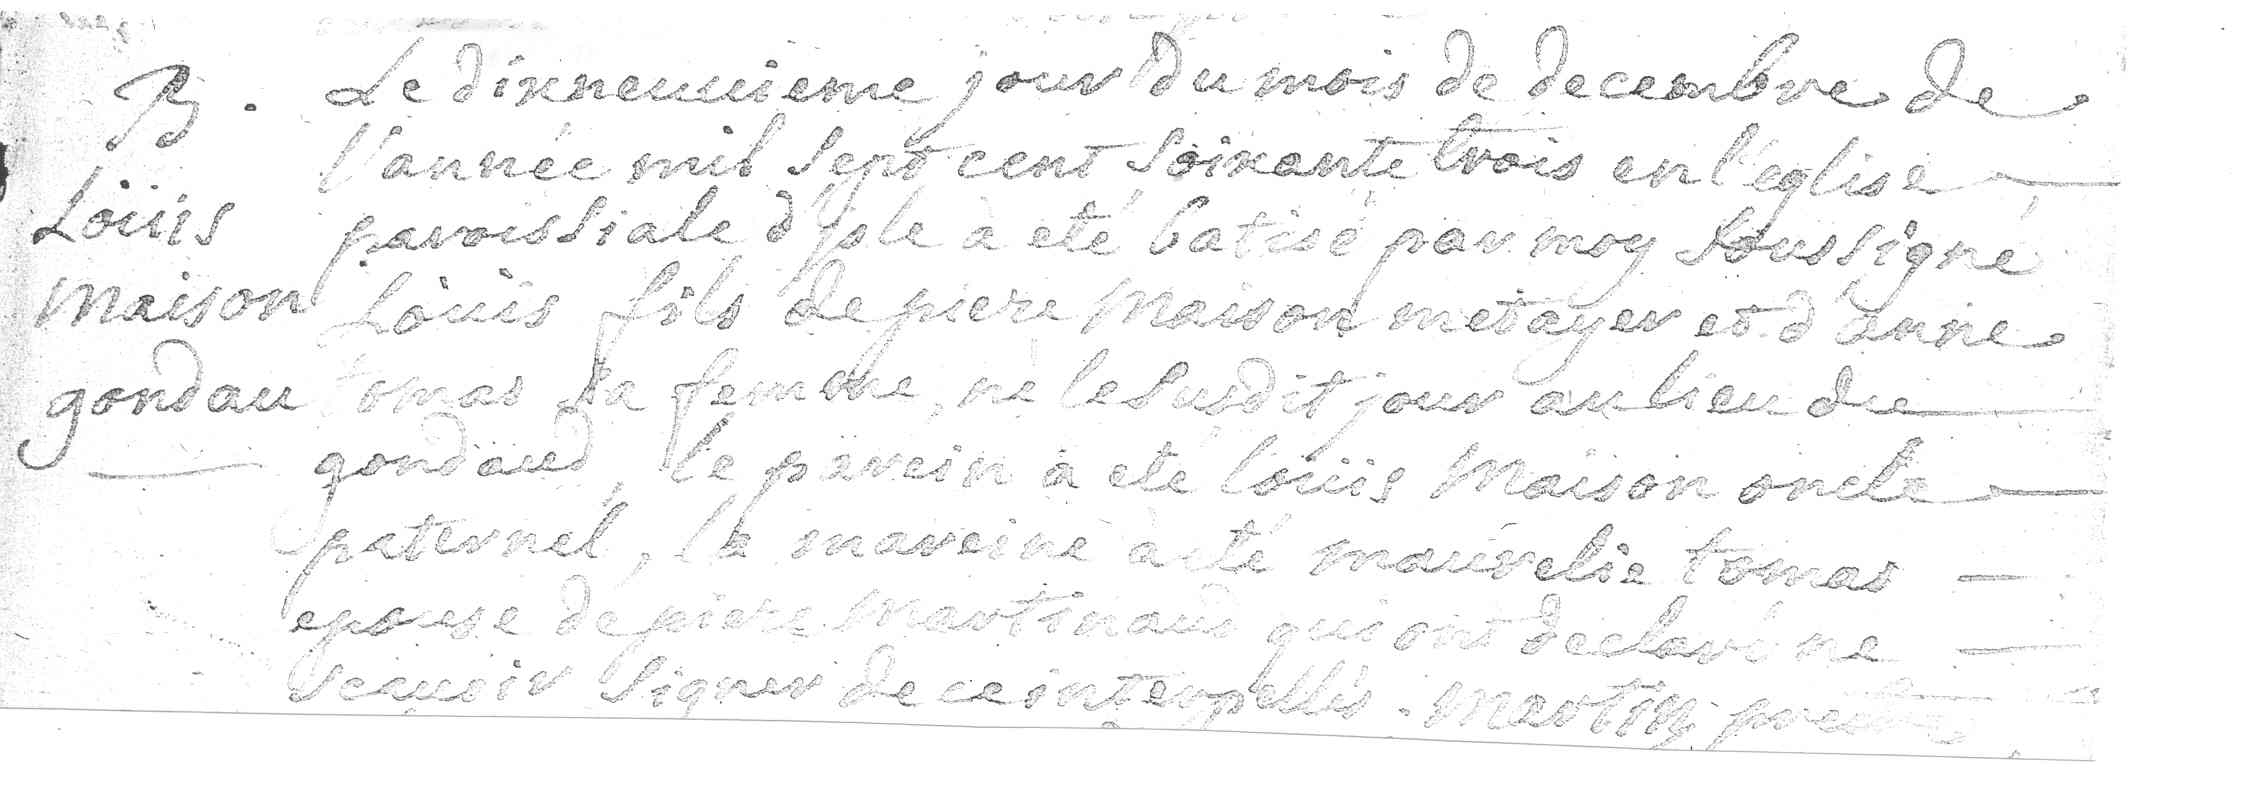 B.
Loüis
Maison
gondau
Le dixneuuieme jour du mois de decembre de
l'année mil sept cent soixante trois en l'église
paroissiale d'jsle à eté batisé par moy soussigné
Loüis fils de piere Maison metayer et d'anne
tomas sa femme, né le susdit jour au lieu du
gondaud, le parein à eté loüis Maison oncle
paternel, la mareine à eté maurelie tomas
epouse de piere Martinaud qui ont declaré ne
scauoir signer de ce interpellés. Martin prestre